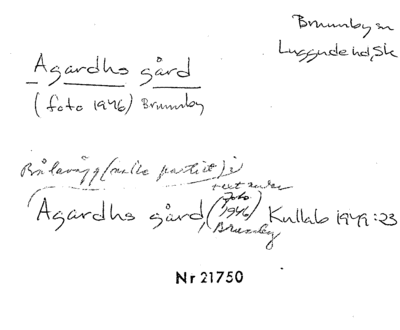 Brunnby sn
Luggude hd, Sk
Agardhs gård
(foto 1946) Brunnby
Bålavägg (mellre partiet) i
text under
Agardhs gård, (foto 1946) Brunnby Kullab 1949:23
Nr 21750